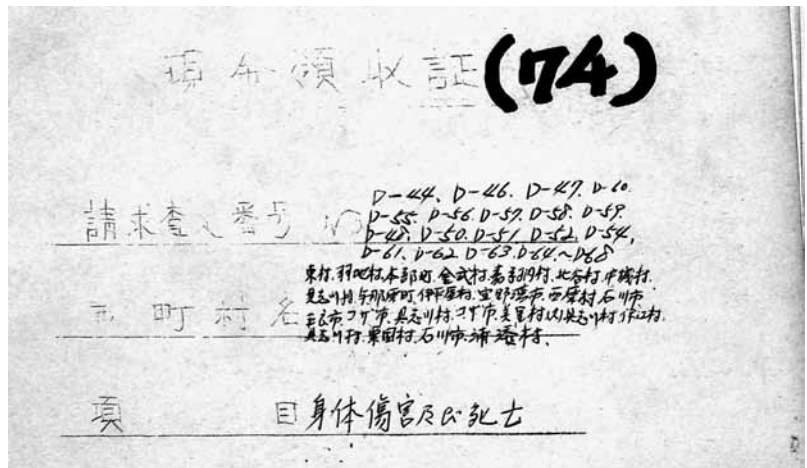 現金領収証(74)
D-44、D-46. D-47. D-60.
請求査定番号
D-55. D-56. D-57. D-58. D-59.
D-48. D-50. D-51 D-52. D-54,
D-61. D-62 D-63. D-64.~D68
東村.羽地村.本部町.金武村.嘉手納村.北谷村.中城村.
具志川村.与那原町.伊平屋村.宜野湾市.西原村.石川市
コザ市.具志川村.コザ市.美里村
市町村名
具志川村.粟国村.石川市.浦添村.
項目 身体傷害及び死亡